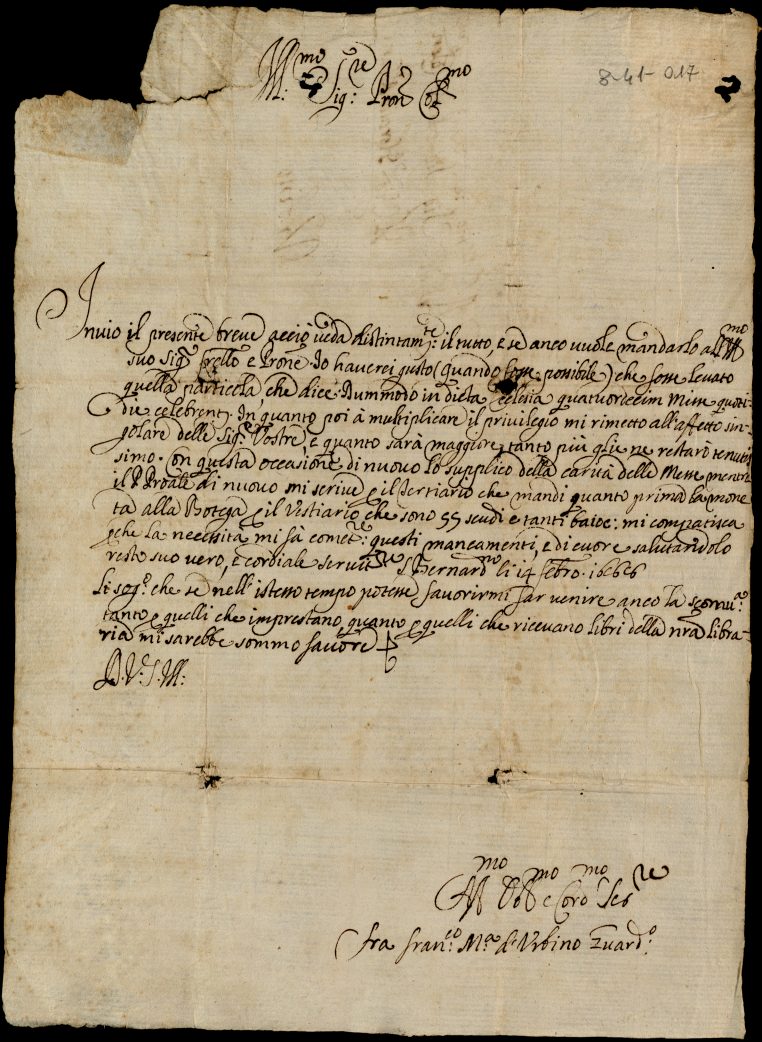 8-41-017
Ill:mo Sig:re Pron Col:mo
Invio il presente breve acciò veda distintam:te il tutto, e se anco vuole mandarlo all'Ill:mo
suo Sig:r frello e Prone. Io haverei gusto (quando fosse possibile) che fosse levato
quella particola che dice. Dummodo in dicta Ecclesia quatuordecim Messe quoti-
die celebrent. In quanto poi à multiplicare il privilegio mi rimetto all'affetto sin-
golare delle Sig:e Vostre, e quanto sarà maggiore, tanto più glie ne restarò tenutis
simo. Con questa occasione di nuovo lo supplico della carità delle Messe mentre
il P. Proãle di nuovo mi scrive p il Sertiario che mandi quanto prima la mone
ta alla Botega p il Vestiario che sono 55 scudi e tanti baioc: mi compatisca
pche la necessità mi fà comet:re questi mancamenti, e di cuore salutandolo
resto suo vero, e cordiale servit:re S Bernard:no li 14 febro. 1666
Li sog:o che se nell'istesso tempo potesse favorirmi far venire anco la scomu:a
tanto p quelli che imprestano, quanto p quelli che ricevano libri della nra libra-
ria mi sarebbe sommo favore
D. V: S. Ill:
Aff:mo Obb:mo e Cord:mo Se:re
fra Fran:co M:a d'Urbino Guard:o